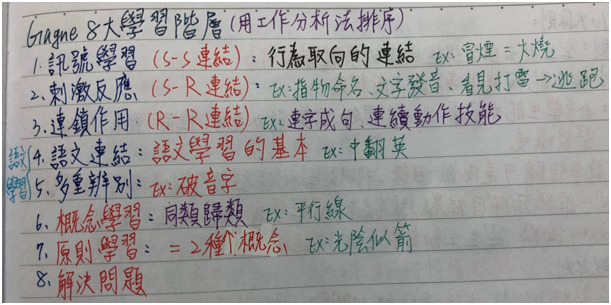 Gagne 8大學習階層(用工作分析法排序)
1.訊號學習 (S-S 連結):行為取向的連結 Ex:冒煙=火燒
2.刺激反應 (S-R連結):Ex:指物命名、文字發音、看見打雷→逃跑
3.連鎖作用 (R-R連結) Ex:連字成句、連續動作技能
語文學習
4.語文連結:語文學習的基本 Ex:中翻英
5.多重辨別:Ex:破音字
6.概念學習:同類歸類 Ex:平行線
7.原則學習:=2種個概念 Ex:光陰似箭
8.解決問題